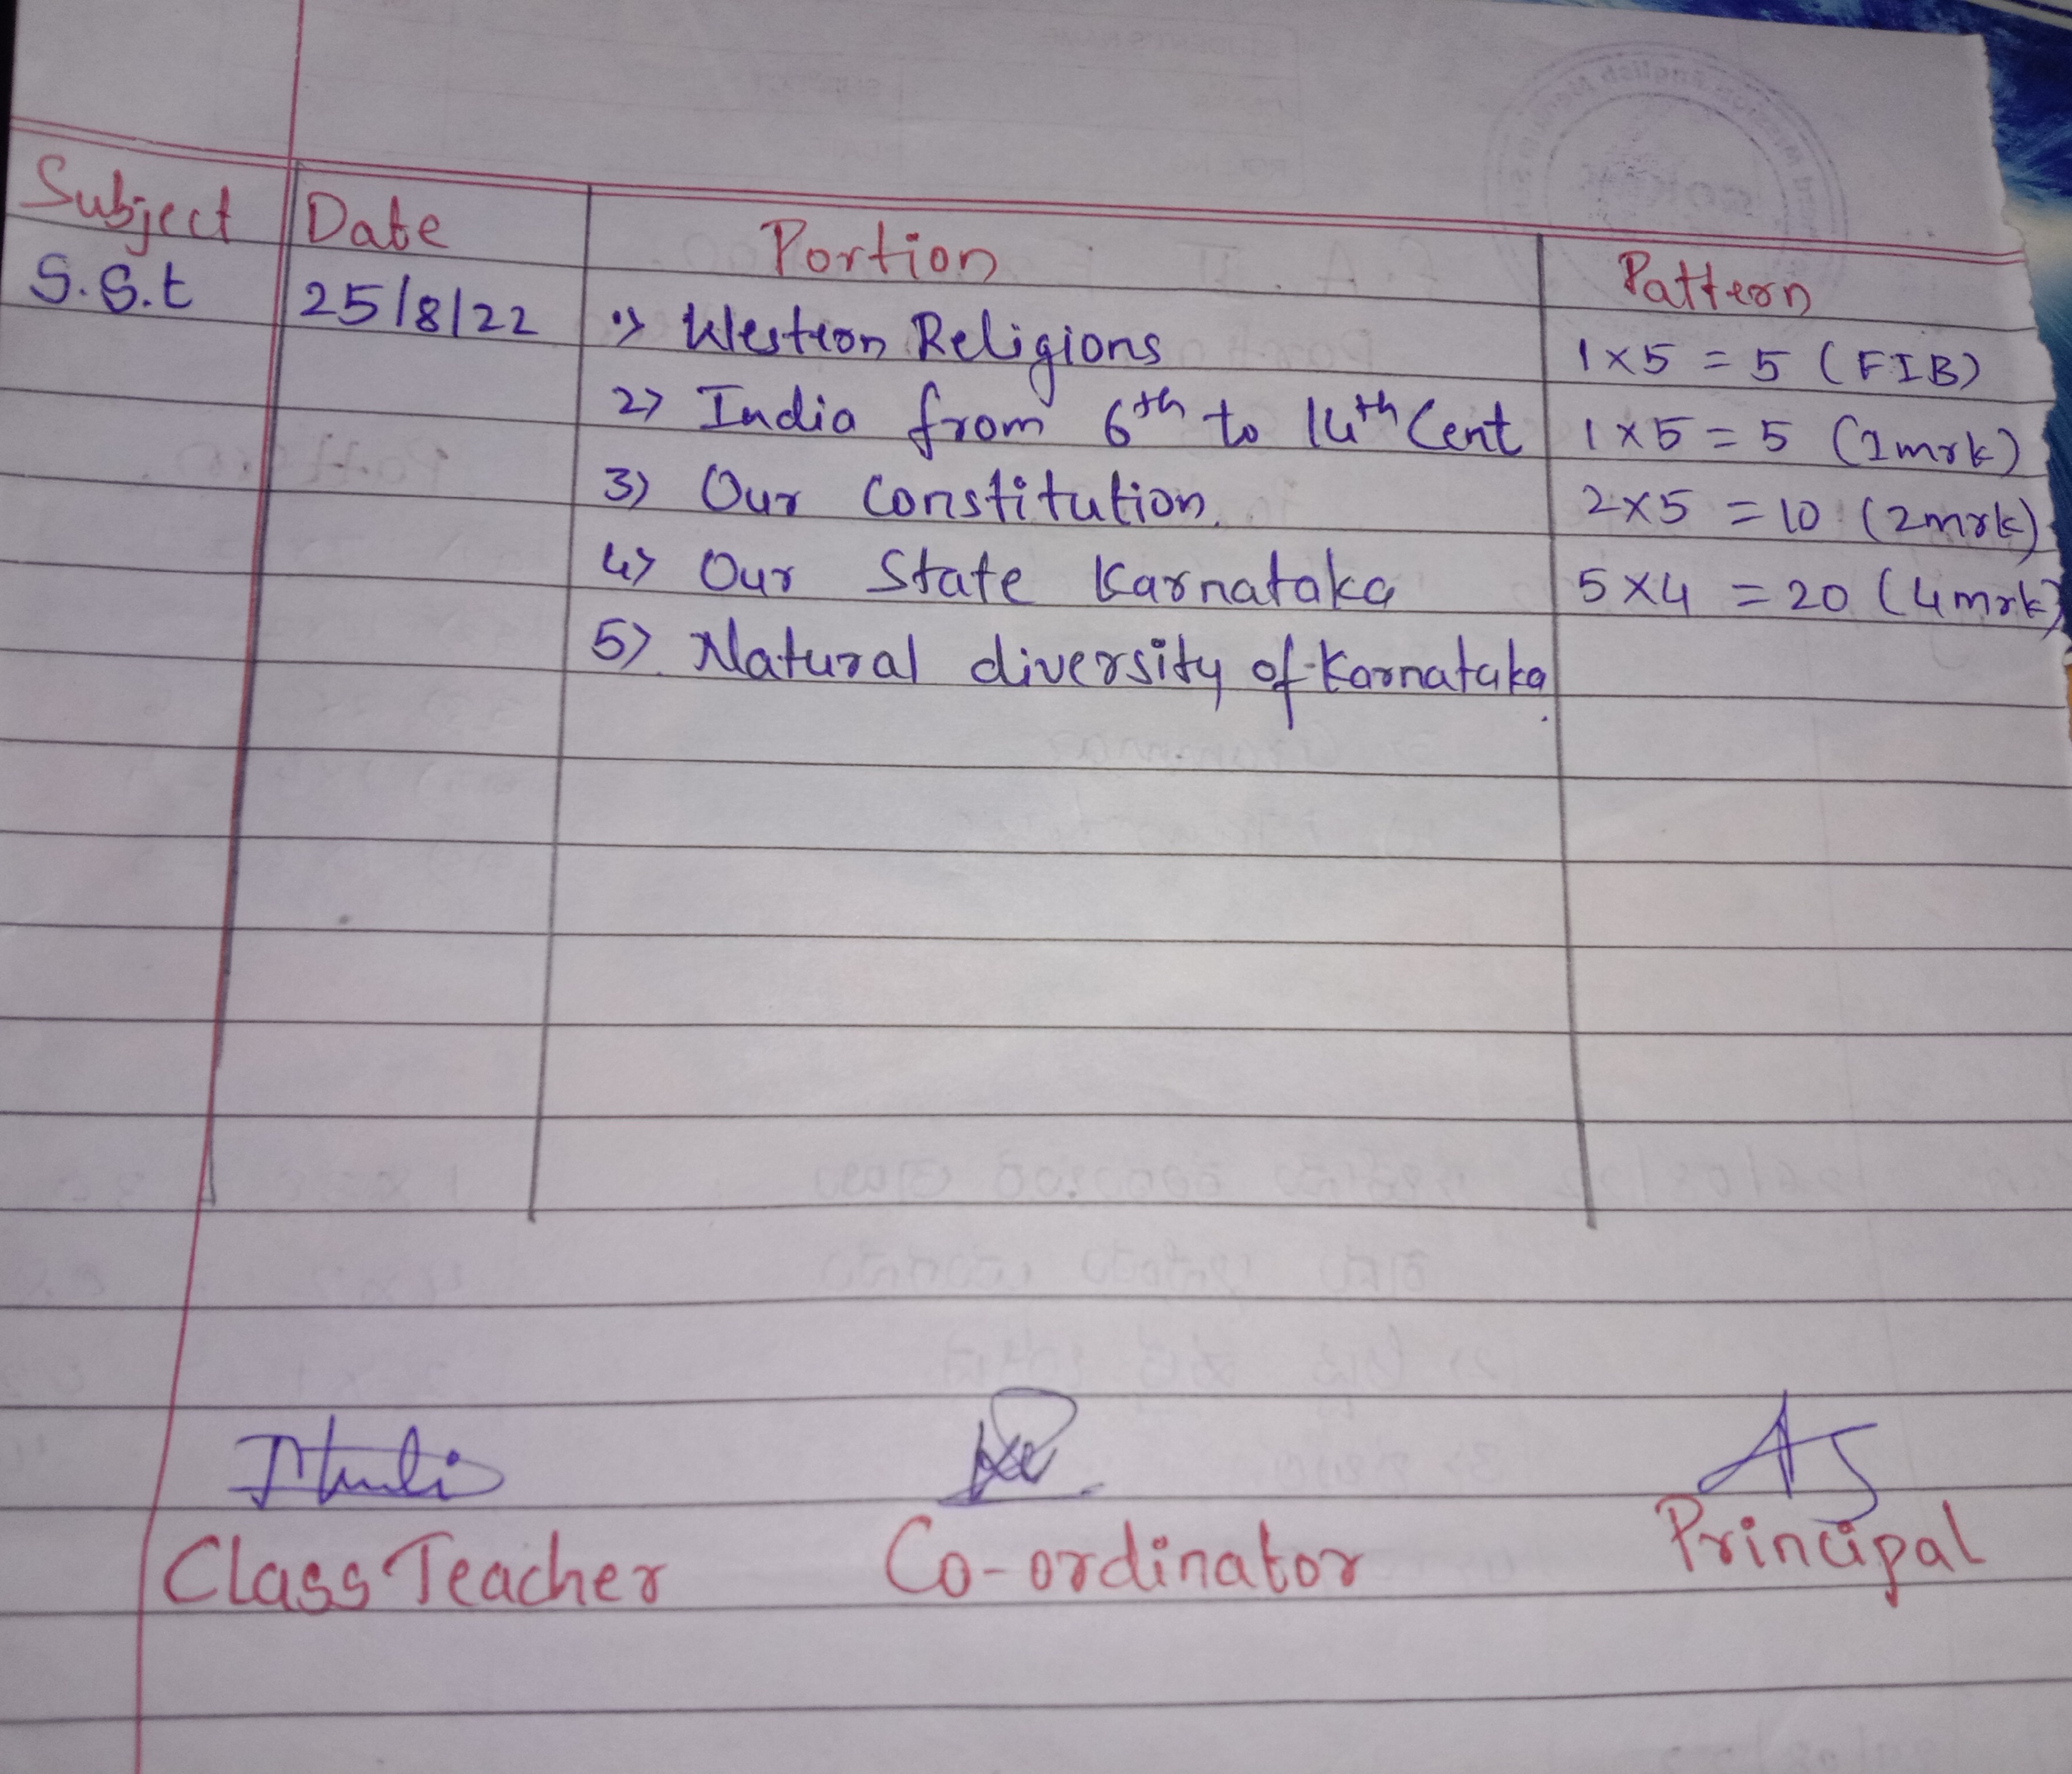 Subject Date Portion Pattern
S.S.t 25/8/22 1) Western Religions 1x5 = 5 (FIB)
2) India from 6th to 14th Cent 1x5 = 5 (1mrk)
3) Our Constitution. 2x5 = 10 (2mrk)
4) Our State Karnataka 5x4 = 20 (4mrk)
5) Natural diversity of Karnataka.
Class Teacher Co-ordinator Principal